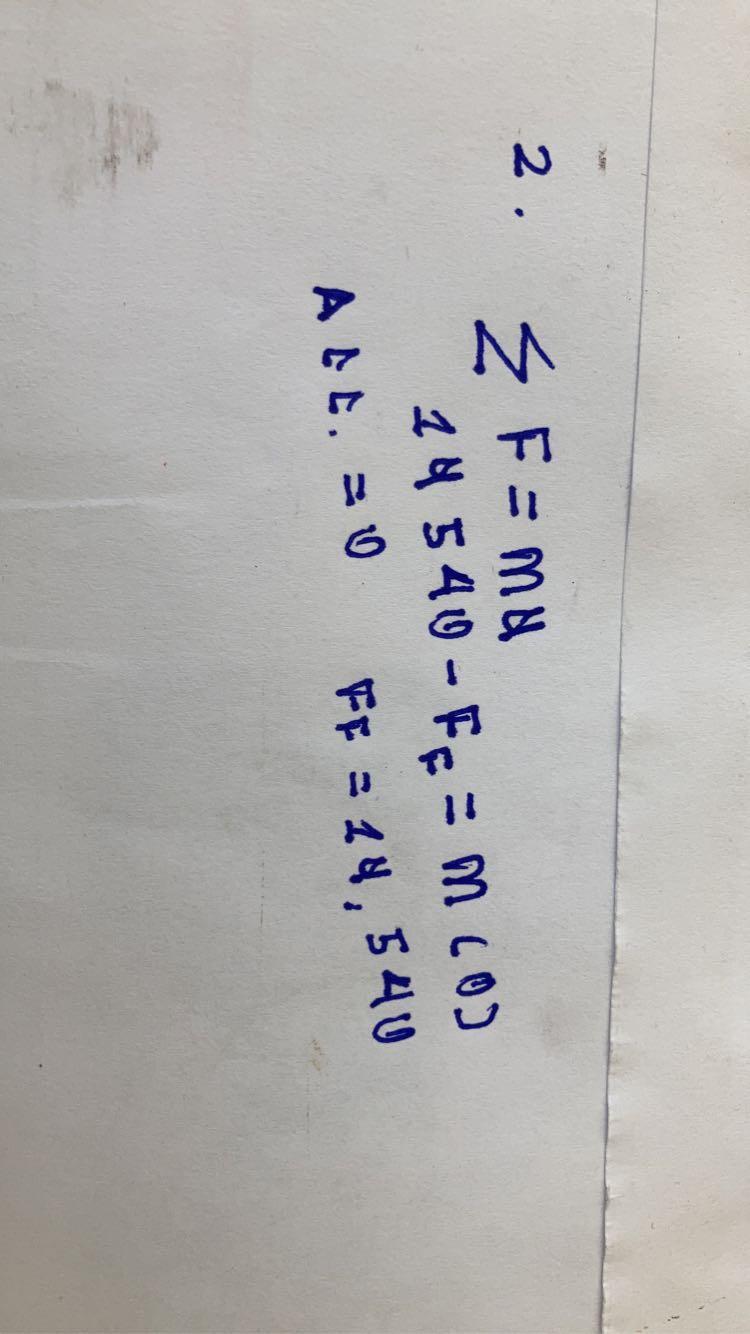 2. ∑F=ma
14540-FF=m(0)
Acc.=0 FF=14,540